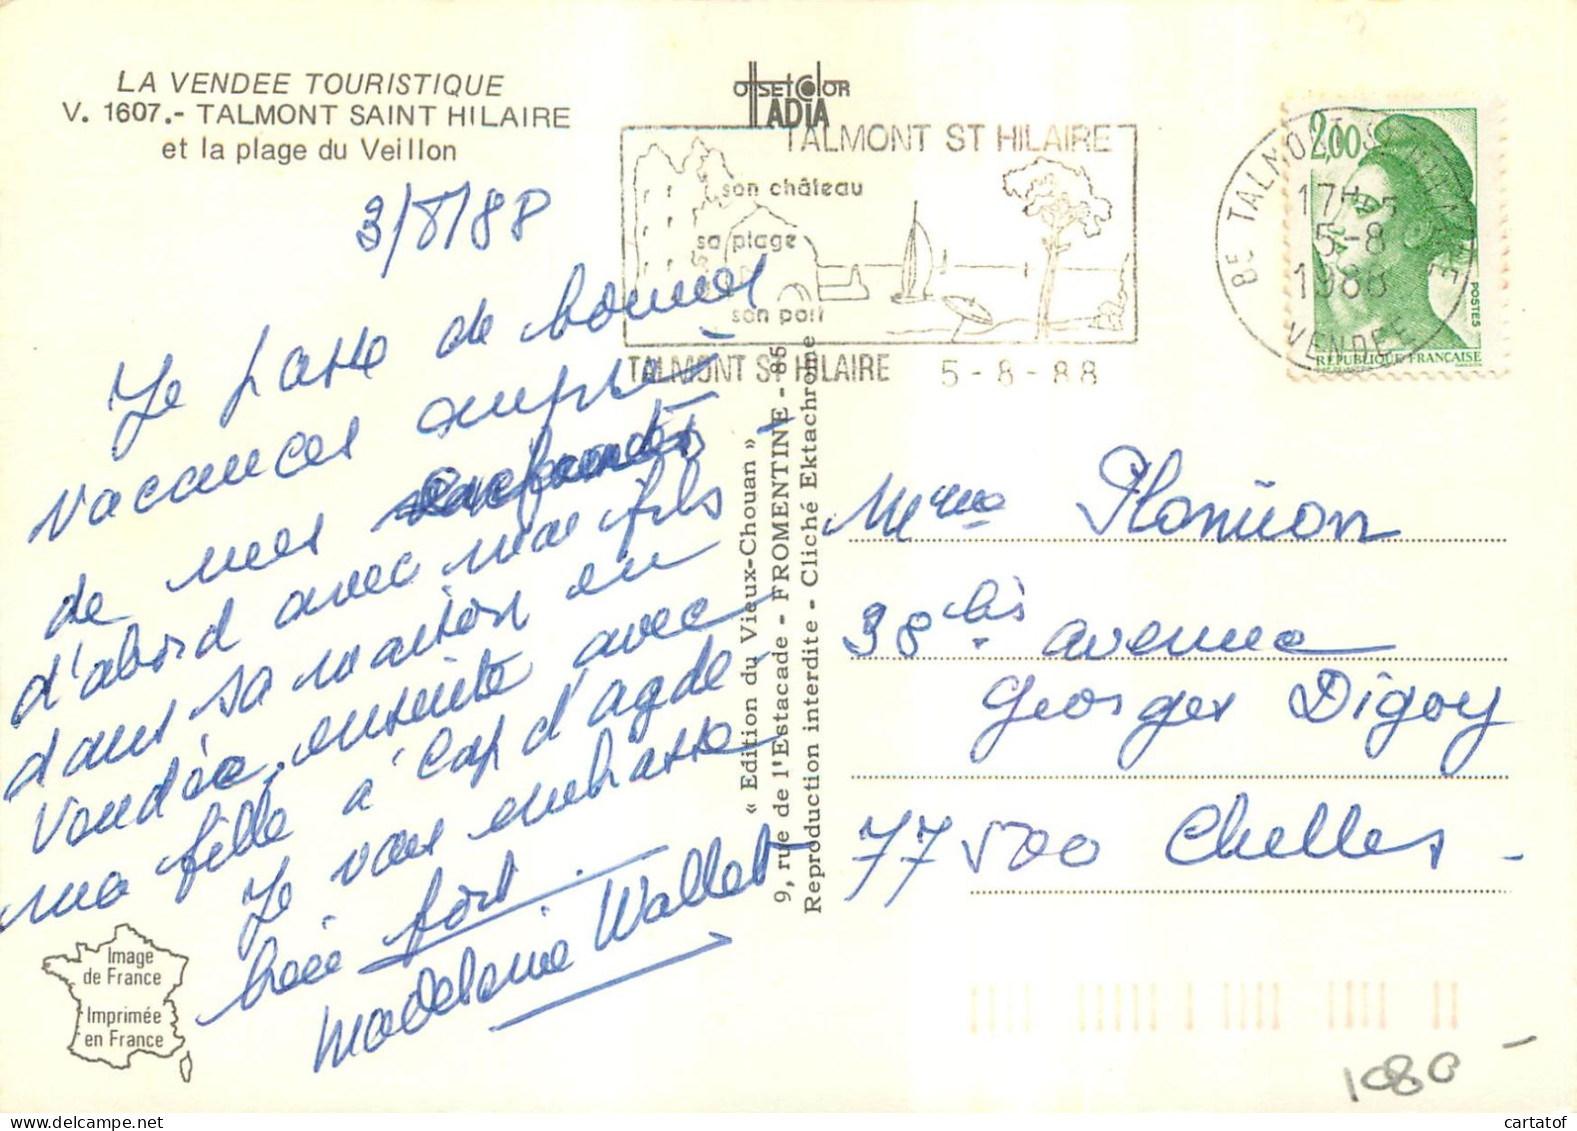 LA VENDEE TOURISTIQUE
V. 1607.- TALMONT SAINT HILAIRE
et la plage du Veillon
3/8/88
Je passe de bonnes
vacances auprès
de mes enfants
d'abord avec mon fils
dans sa maison en
Vendée, ensuite avec
ma fille à Cap d'agde.
Je vous embrasse
bien fort.
Madeleine Wallet
Image
de France
Imprimée
en France
OffsetColor
ADIA
TALMONT ST HILAIRE
son château
sa plage
son port
TALMONT ST HILAIRE 5-8-88
« Edition du Vieux-Chouan »
9, rue de l'Estacade - FROMENTINE - 85
Reproduction interdite - Cliché Ektachrome
85 TALMONT ST HILAIRE
17H-5
5-8
1988
VENDEE
2,00
POSTES
REPUBLIQUE FRANÇAISE
Mme
38 bis avenue
Georges Digoy
77500 Chelles
1080
cartatof